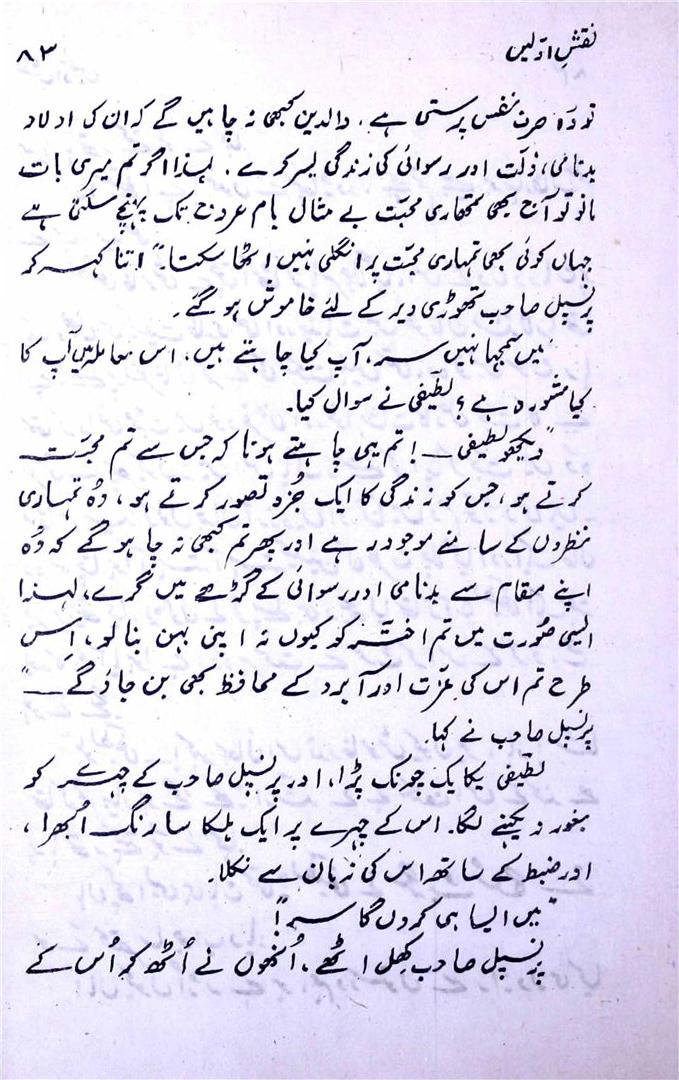 نقشِ اوّلیں
۸۳
تو وہ صرف نفس پرستی ہے۔ والدین کبھی نہ چاہیں گے کہ ان کی اولاد
بدنامی، ذلّت اور رسوائی کی زندگی بسر کرے۔ لہذا اگر تم میری بات
مانو تو آج بھی تمھاری محبّت بے مثال بام عروج تک پہنچ سکتی ہے
جہاں کوئی بھی تمہاری محبّت پر انگلی نہیں اٹھا سکتا۔" اتنا کہہ کر
پرنسپل صاحب تھوڑی دیر کے لئے خاموش ہو گئے۔
"میں سمجھا نہیں سر، آپ کیا چاہتے ہیں، اس معاملہ میں آپ کا
کیا مشورہ ہے؟ لطیفی نے سوال کیا۔
"دیکھو لطیفی ــــ! تم یہی چاہتے ہو نا کہ جس سے تم محبّت
کرتے ہو، جس کو زندگی کا ایک جُزو تصور کرتے ہو، وُہ تمہاری
نظروں کے سامنے موجود رہے اور پھر تم کبھی نہ چاہو گے کہ وُہ
اپنے مقام سے بدنامی اور رسوائی کے گڑھے میں گرے، لہذا
ایسی صُورت میں تم اختر کو کیوں نہ اپنی بہن بنا لو، اِس
طرح تم اس کی عزّت اور آبرو کے محافظ بھی بن جاؤ گے ــــ"
پرنسپل صاحب نے کہا۔
لطیفی یکایک چونک پڑا، اور پرنسپل صاحب کے چہرے کو
بغور دیکھنے لگا۔ اس کے چہرے پر ایک ہلکا سا رنگ اُبھرا،
اور ضبط کے ساتھ اس کی زبان سے نکلا۔
"میں ایسا ہی کروں گا سر"!
پرنسپل صاحب کھِل اٹھے، اُنھوں نے اُٹھ کر اُس کے